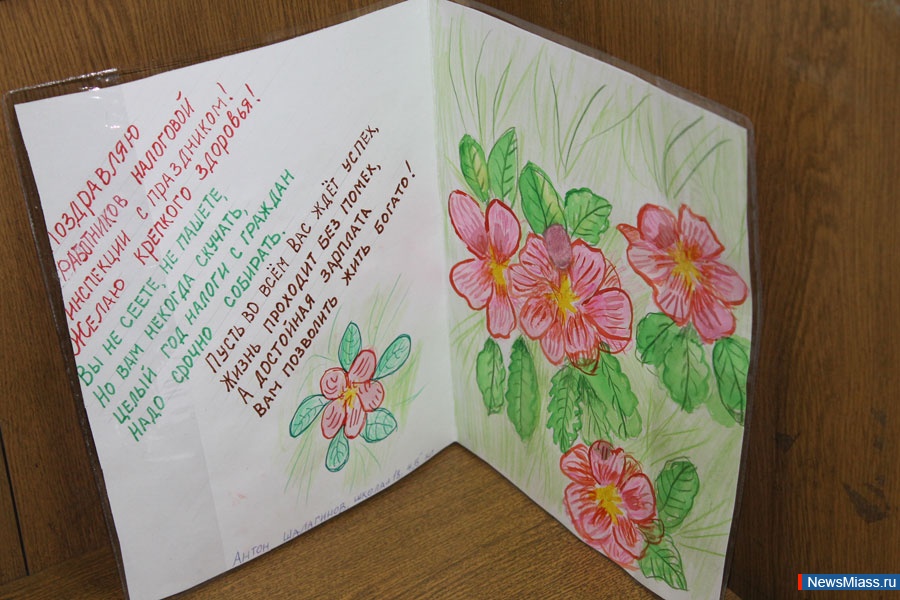 Поздравляю
работников налоговой
инспекции с праздником!
Желаю крепкого здоровья!
Вы не сеете, не пашете,
Но вам некогда скучать,
Целый год налоги с граждан
Надо срочно собирать.
Пусть во всём вас ждёт успех,
Жизнь проходит без помех,
А достойная зарплата
Вам позволить жить богато!
Антон Шалагинов школа
NewsMiass.ru